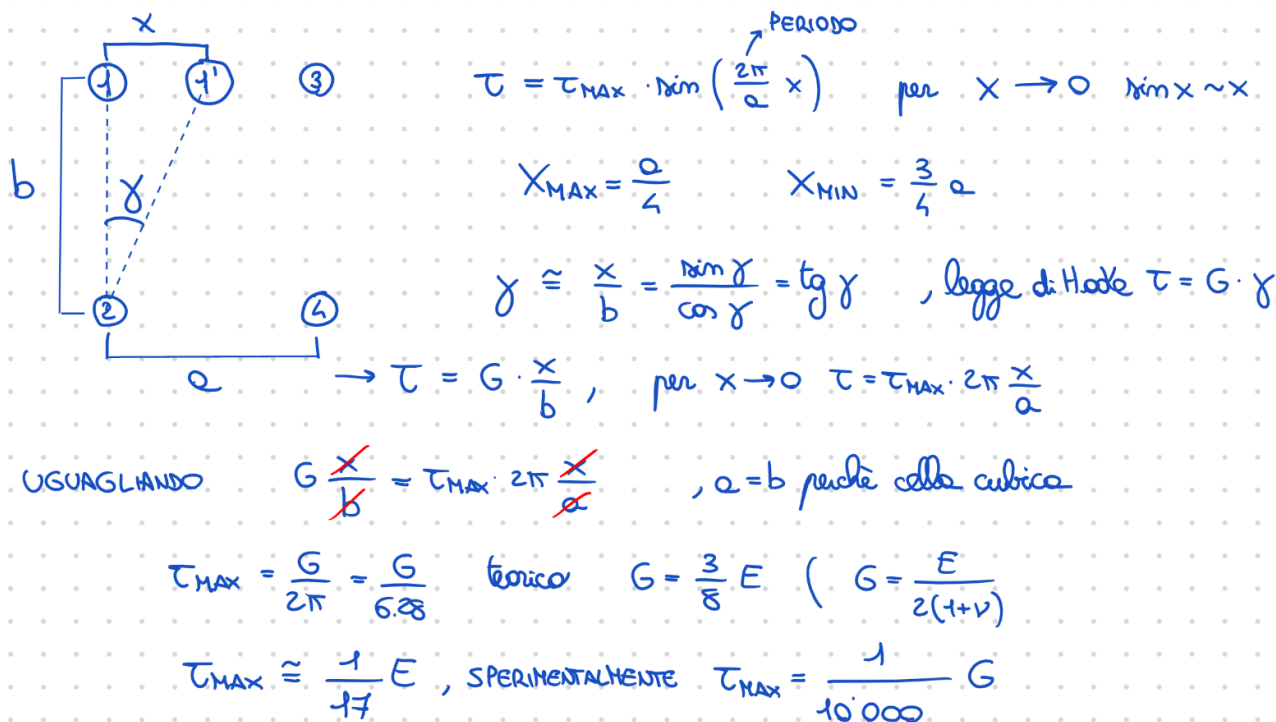 x
PERIODO
1 1' 3
τ = τMAX · sin (2π/a x) per x → 0 sin x ~ x
b γ
XMAX = a/4 XMIN = 3/4 a
γ ≅ x/b = sin γ/cos γ = tg γ , legge di Hooke τ = G · γ
2 4
a
→ τ = G · x/b , per x → 0 τ = τMAX · 2π x/a
UGUAGLIANDO G x/b = τMAX · 2π x/a , a = b perchè cella cubica
τMAX = G/2π = G/6.28 teorico G = 3/8 E ( G = E/2(1+ν)
τMAX ≅ 1/17 E , SPERIMENTALMENTE τMAX = 1/10'000 G